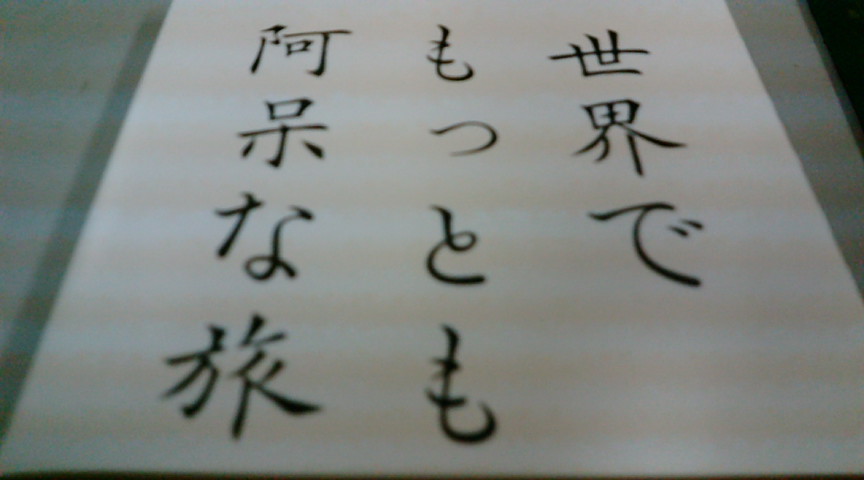 世界で
もっとも
阿呆な旅